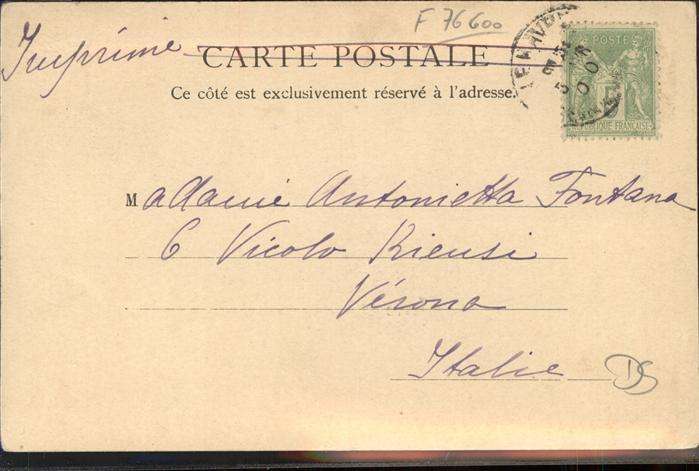 F 76600
Imprimé
CARTE POSTALE
Ce côté est exclusivement réservé à l'adresse.
POSTE
5
REPUBLIQUE FRANÇAISE
Madame Antonietta Fontana
6 Vicolo Rieusi
Vérona
Italie
DS